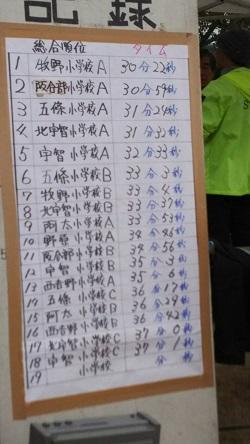 記録
総合順位 タイム
1 牧野小学校A 30分22秒
2 阪合部小学校A 30分59秒
3 五條小学校A 31分24秒
4 北宇智小学校A 31分32秒
5 宇智小学校A 32分33秒
6 五條小学校B 33分3秒
7 牧野小学校B 33分4秒
8 北宇智小学校B 33分37秒
9 阿太小学校A 33分53秒
10 野原小学校A 34分46秒
11 阪合部小学校B 34分56秒
12 宇智小学校B 35分3秒
13 西吉野小学校A 35分6秒
14 五條小学校C 36分17秒
15 阿太小学校B 36分29秒
16 西吉野小学校B 36分42秒
17 北宇智小学校C 37分0秒
18 宇智小学校C 37分1秒
19 小学校 分 秒